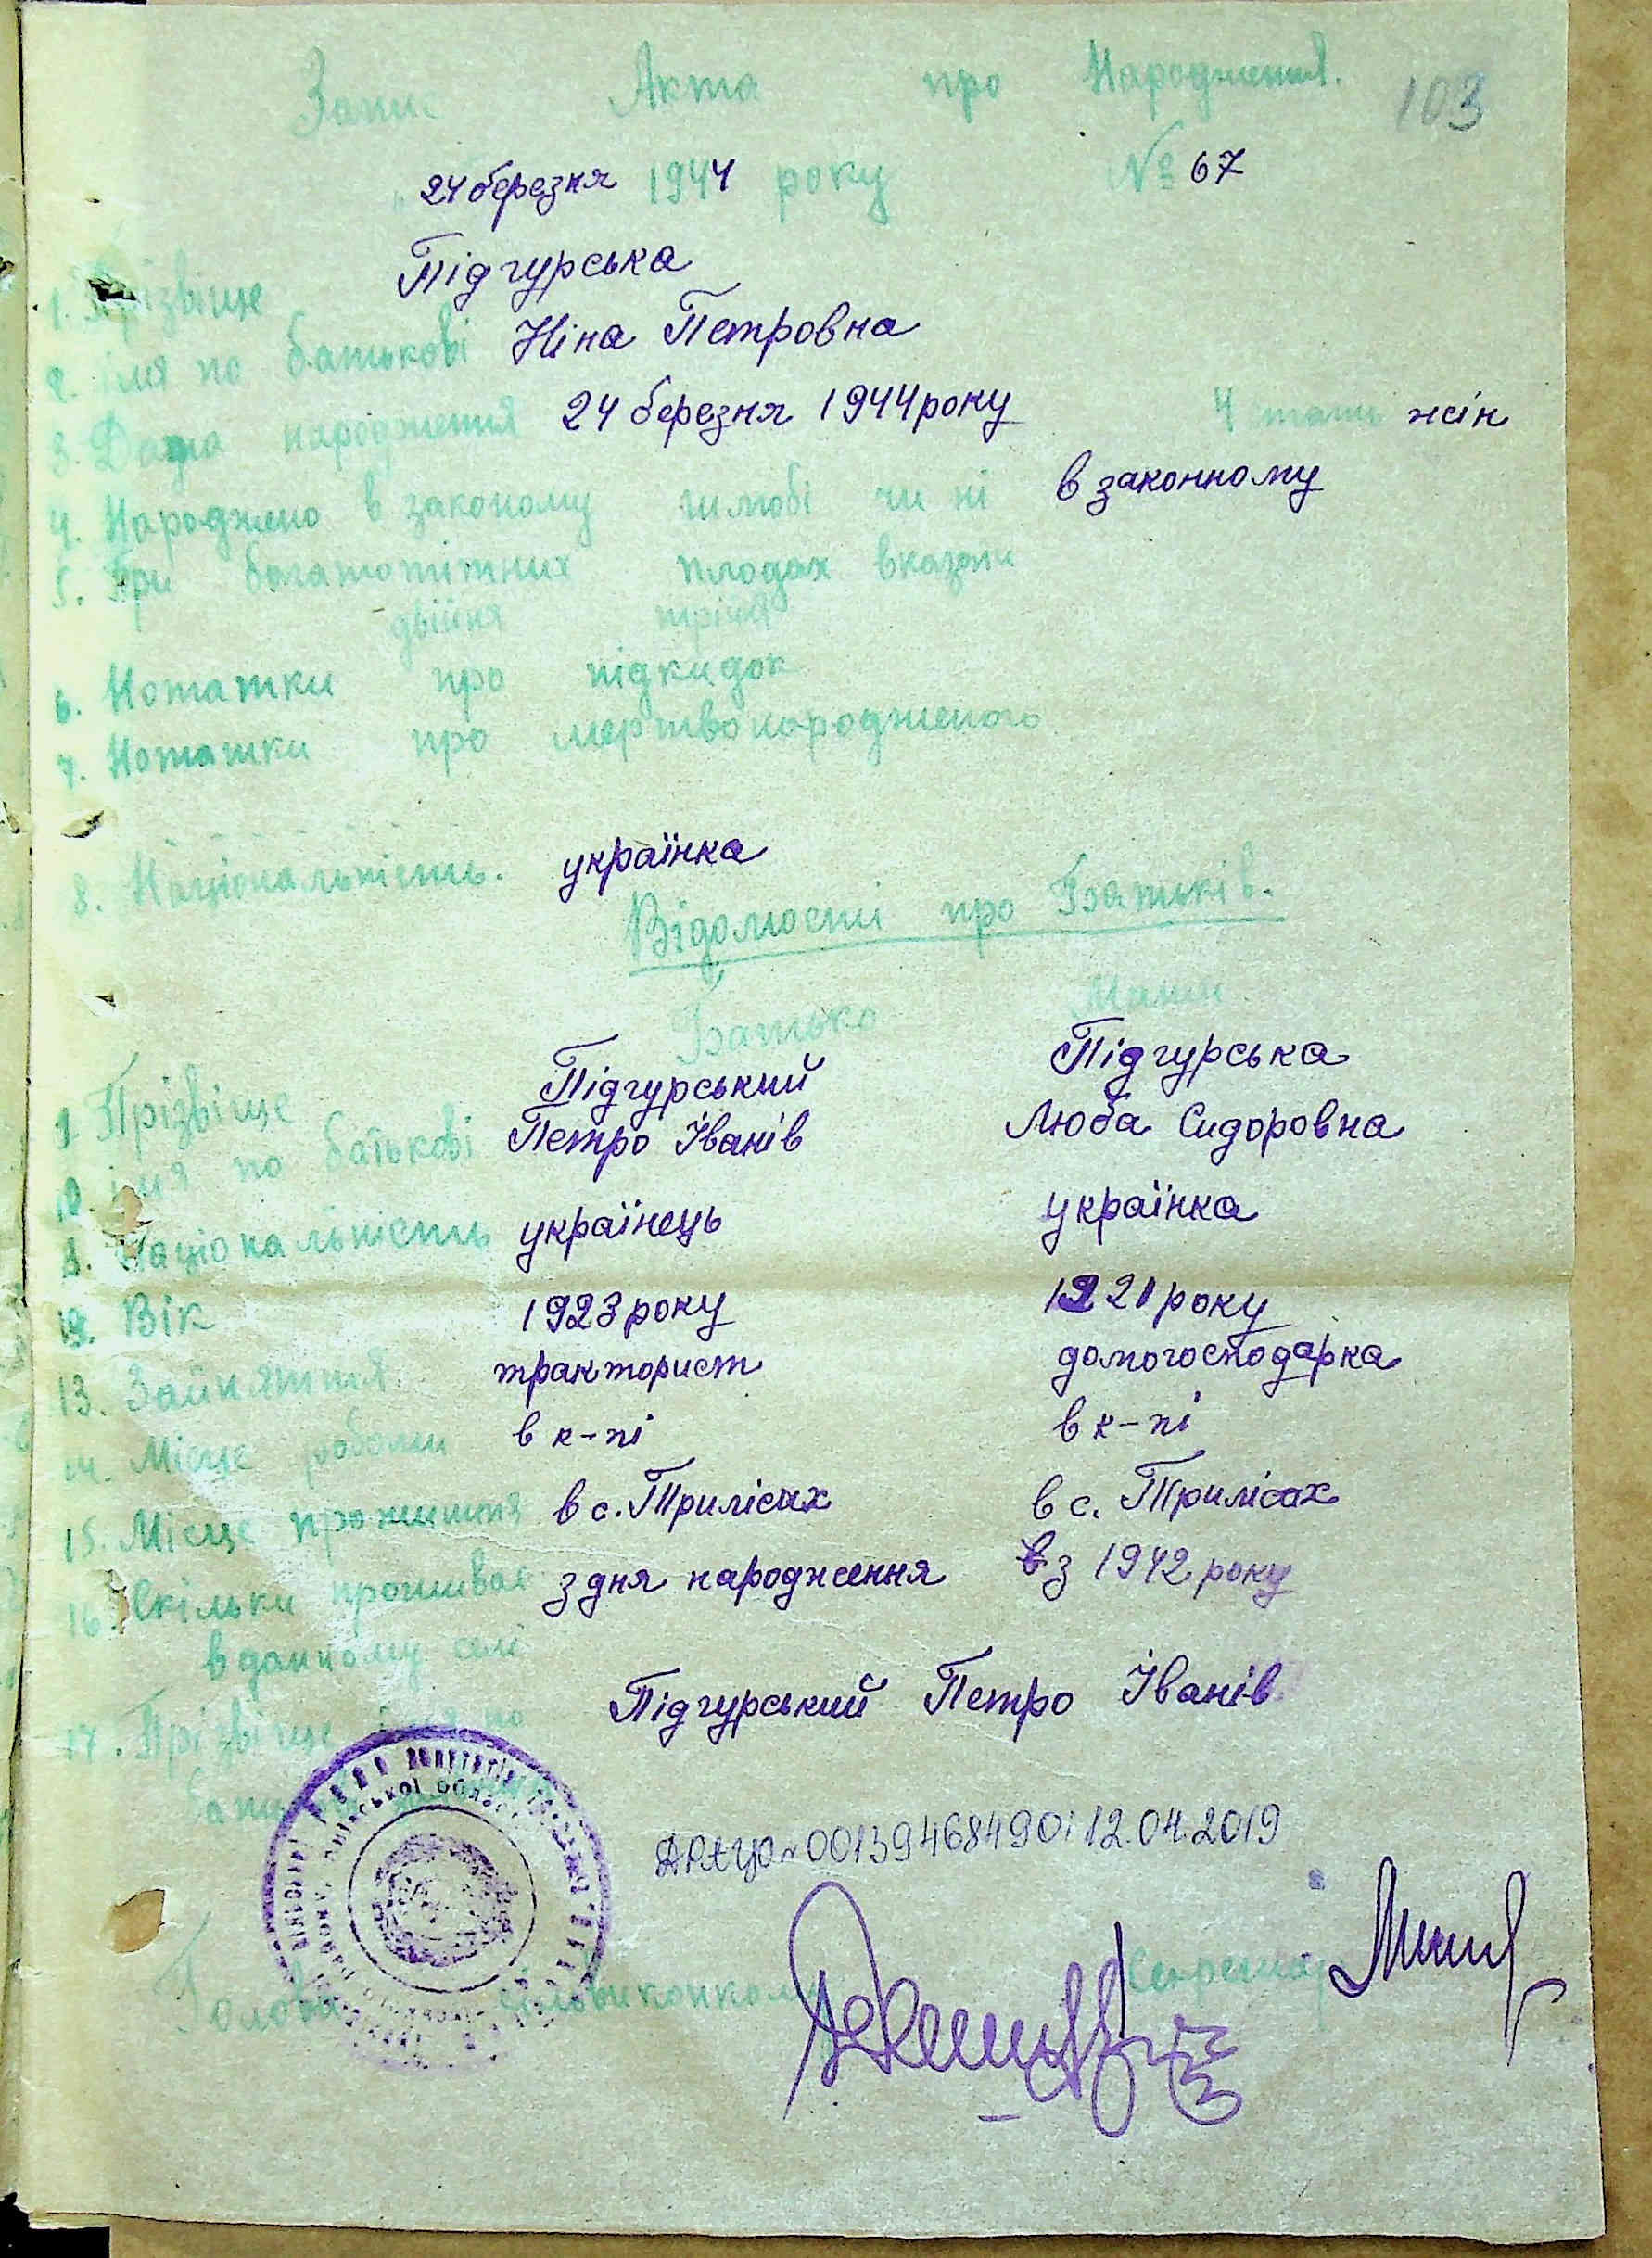 Запис Акта про Народження. 103
24 березня 1944 року № 67
1. Прізвище Підгурська
2. імя по батькові Ніна Петровна
3. Дата народження 24 березня 1944 року 4 стать жін
4. Народжено в законому шлюбі чи ні в законному
5. При багатопітних плодах вказати
двійня трійня
6. Нотатки про підкидок
7. Нотатки про мертвонародженого
8. Національність. українка
Відомости про Батьків.
Батько Мати
Прізвище Підгурський Підгурська
10. імя по батькові Петро Іванів Люба Сидоровна
Національність українець українка
Вік 1923 року 1921 року
13. Зайняття тракторист домогосподарка
14. Місце роботи в к-пі в к-пі
15. Місце проживття в с. Трилісах в с. Трилісах
16. Скільки проживає з дня народження з 1942 року
в данному селі
17. Прізвище імя по Підгурський Петро Іванів
00139468490 12.04.2019
Голова сільвиконкому Секретар